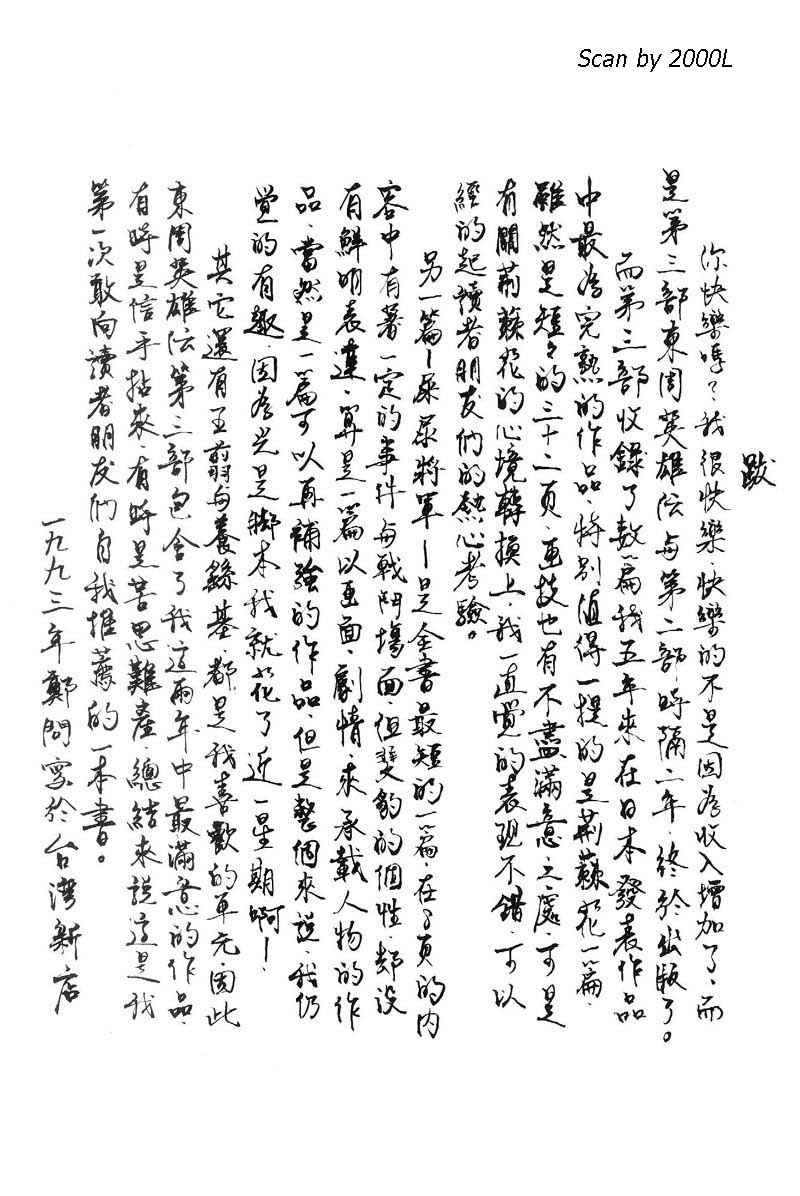 Scan by 2000L
跋
你快樂嗎？我很快樂．快樂的不是因為收入增加了．而
是第三部東周英雄伝与第二部時隔二年．終於出版了。
而第三部收錄了数篇我五年來在日本發表作品
中最為完熟的作品．特別值得一提的是荊蘇花一篇．
雖然是短々的三十二頁．画技也有不盡滿意之處．可是
有關荊蘇花的心境轉換上．我一直覺的表現不錯．可以
經的起讀者朋友們的熱心考驗。
另一篇—屎尿將軍—是全書最短的一篇．在8頁的内
容中有著一定的事件与戰鬥場面．但斐豹的個性却没
有鮮明表達．算是一篇以画面．劇情．來承載人物的作
品．當然是一篇可以再補強的作品．但是整個來説．我仍
覺的有趣．因為光是脚本我就花了近一星期啊—．
其它還有王翦与養繇基．都是我喜歡的单元．因此
東周英雄伝第三部包含了我這兩年中最滿意的作品．
有時是信手拈來．有時是苦思難產．總結來説這是我
第一次敢向讀者朋友們自我推薦的一本書。
一九九三年鄭問寫於台灣新店